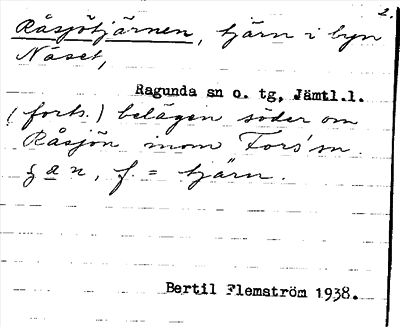 2.
Råsjötjärnen, tjärn i byn
Näset,
Ragunda sn o. tg, Jämtl.l.
(forts.) belägen söder om
Råsjön inom Fors' sn.
f. = tjärn.
Bertil Flemström 1938.